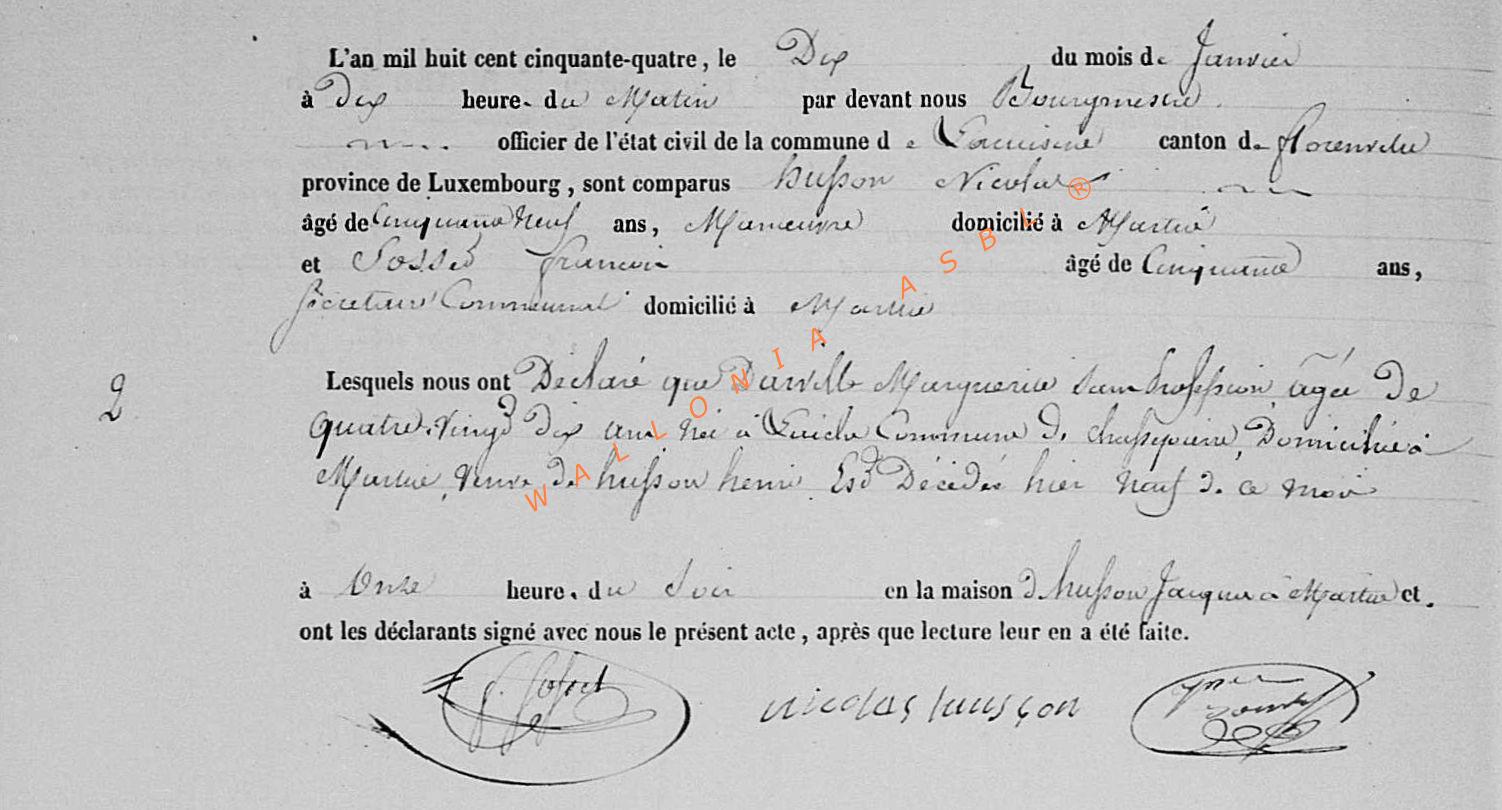 L'an mil huit cent cinquante-quatre, le Dix du mois de Janvier
à Dix heure. du Matin par devant nous Bourgmestre
officier de l'état civil de la commune de canton de florenville
province de Luxembourg, sont comparus husson Nicolas
âgé de Cinquante Neuf ans, Manœuvre domicilié à Martué
et Gosset francois âgé de Cinquante ans,
Secretaire Communal domicilié à Martué
Lesquels nous ont Déclaré que Marguerite sans Profession, agée De
quatre-vingt dix ans Née à Laiche Commune de chassepierre, Domiciliée à
Martué, Veuve de husson henri Est Décédée hier Neuf de ce mois
2
à Onze heure. du Soir en la maison de husson Jacques à Martué et.
ont les déclarants signé avec nous le présent acte, après que lecture leur en a été faite.
nicolas husson
WALLONIA ASBL ®